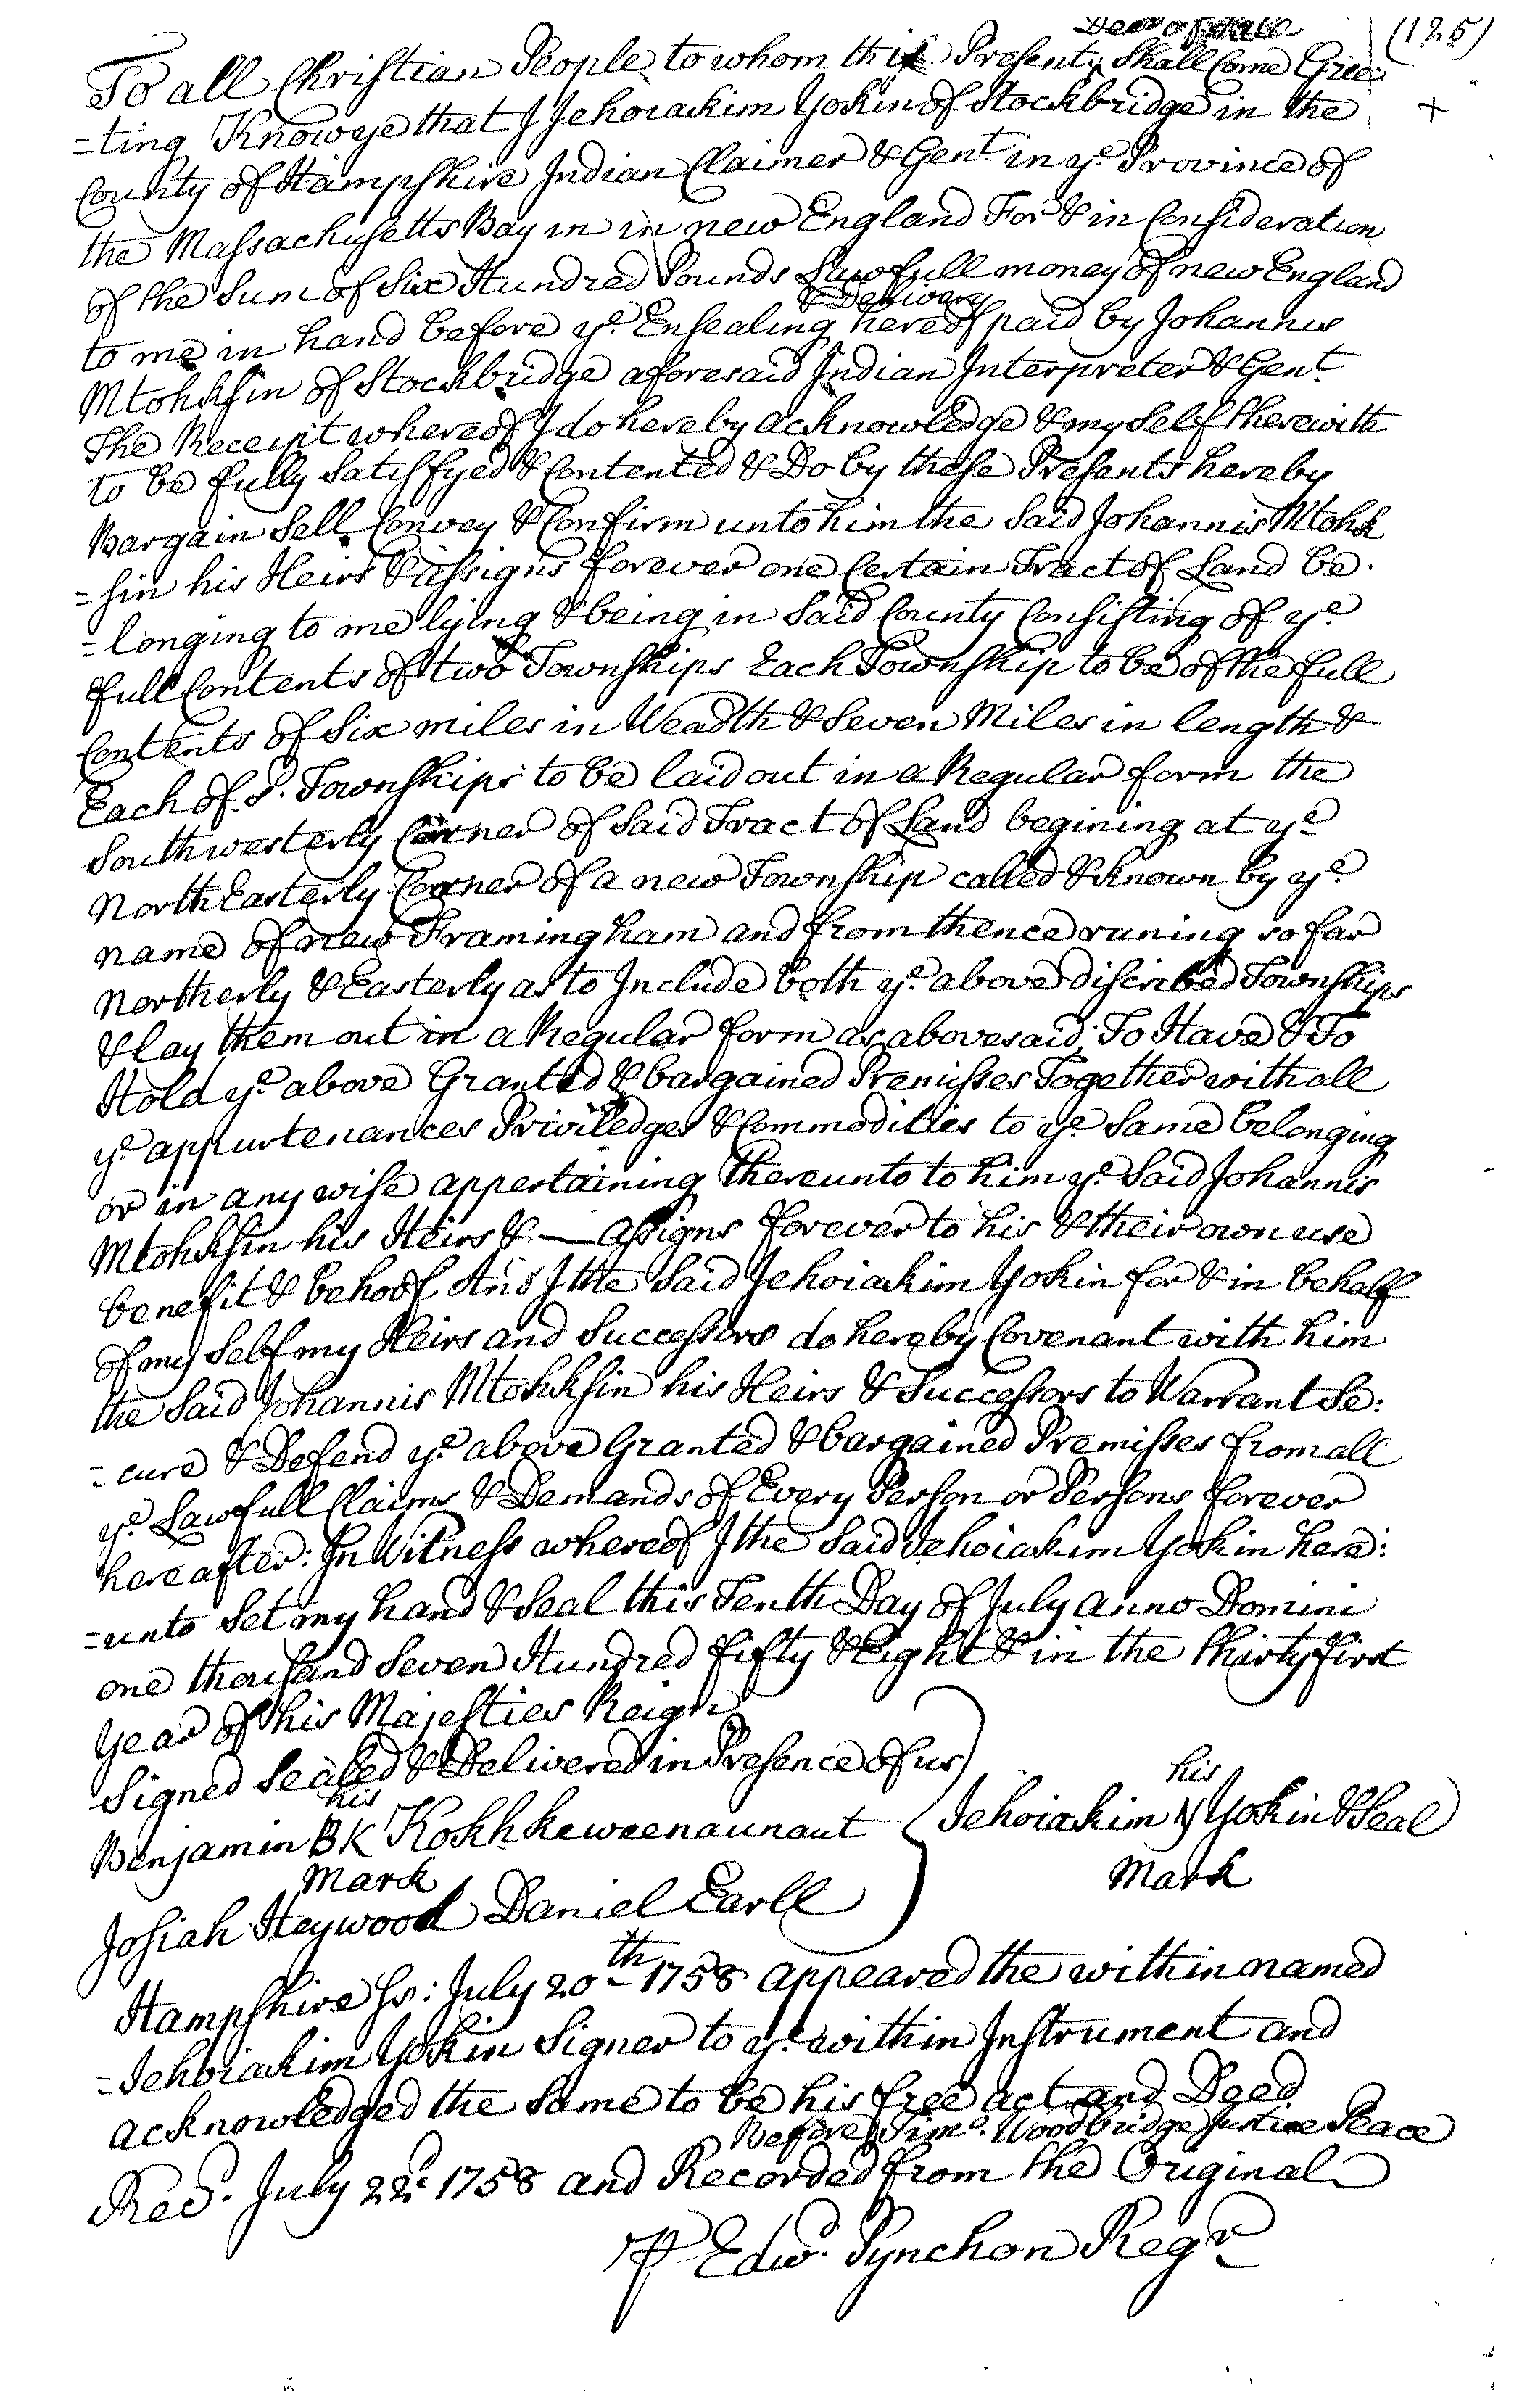 (125)
Deed of Sale
To all Christian People to whom this Presents Shall Come Gree:
=ting Know ye that I Jehoiakim Yokin of Stockbridge in the
County of Hampshire Indian Claimer & Gent. in ye. Province of
the Massachusetts Bay in in new England For & in Consideration
of the Sum of Six Hundred Pounds Lawfull money of new England
& Delivery
to me in hand before ye. Ensealing hereof paid by Johannis
Mtohksin of Stockbridge aforesaid Indian Interpreter & Gent.
The Receipt whereof I do hereby acknowledge & my Self therewith
to be fully Satisfyed & Contented & Do by these Presents hereby
Bargain Sell Convey & Confirm unto him the Said Johannis Mtohk
=sin his Heirs & assigns forever one Certain Tract of Land be.
=longing to me lying & being in Said County Consisting of ye.
full Contents of two Townships Each Township to be of the full
Contents of Six miles in Weadth & Seven Miles in length &
Each of sd. Townships to be laid out in a Regular form the
Southwesterly Corner of Said Tract of Land begining at ye.
NorthEasterly Corner of a new Township called & known by ye.
name of new Framingham and from thence runing so far
Northerly & Easterly as to Include both ye. above discribed Townships
& lay them out in a Regular form as abovesaid, To Have & To
Hold ye. above Granted & bargained Premisses Together with all
ye. appurtenances Priviledges & Commodities to ye. Same belonging
or in any wise appertaining thereunto to him ye. Said Johannis
Mtohksin his Heirs & — assigns forever to his & their own use
benefit & behoof And I the Said Jehoiakim Yokin for & in behalf
of my Self my Heirs and Successors do hereby Covenant with him
the Said Johannis Mtohksin his Heirs & Successors to Warrant Se:
=cure & Defend ye. above Granted & bargained Premisses from all
ye. Lawfull Claims & Demands of Every Person or Persons forever
hereafter: In Witness whereof I the Said Jehoiakim Yokin here:
=unto Set my hand & Seal this Tenth Day of July anno Domini
one thousand Seven Hundred fifty & Eight & in the thirty first
Year of his Majesties Reign
Signed Sealed & Delivered in Presence of us
his
Benjamin BK Kokhkeweenaunaut
Mark
Josiah Heywood Daniel Earll
his
Jehoiakim Y Yokin & Seal
Mark
Hampshire Ss: July 20th 1758 appeared the within named
=Jehoiakim Yokin Signer to ye. within Instrument and
acknowledged the Same to be his free act and Deed
Before Timo. Woodbridge Justice Peace
Recd. July 22d. 1758 and Recorded from the Original
P Edwd. Pynchon Regr.